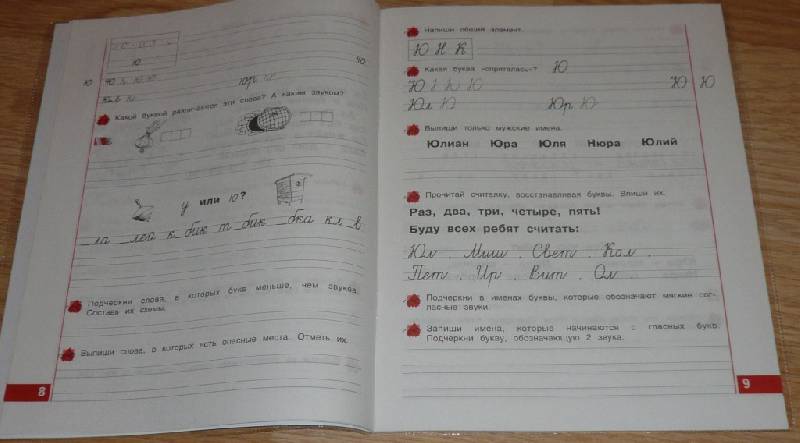 Ю
Ю
Какой буквой различаются эти слова? А каким звуком?
у или ю?
ла лей к бик т бик бка кл в
Подчеркни слова, в которых букв меньше, чем звуков.
Составь их схемы.
Выпиши слова, в которых есть опасные места. Отметь их.
8
Напиши общий элемент.
Ю Н К
Какая буква «спряталась»? Ю
Ю Ю Ю Ю Ю
Юл Ю Юр Ю
Выпиши только мужские имена.
Юлиан Юра Юля Нюра Юлий
Прочитай считалку, восстанавливая буквы. Впиши их.
Раз, два, три, четыре, пять!
Буду всех ребят считать:
Юл , Миш , Свет , Кол ,
Пет , Ир , Вит , Ол .
Подчеркни в именах буквы, которые обозначают мягкие сог-
ласные звуки.
Запиши имена, которые начинаются с гласных букв.
Подчеркни букву, обозначающую 2 звука.
9